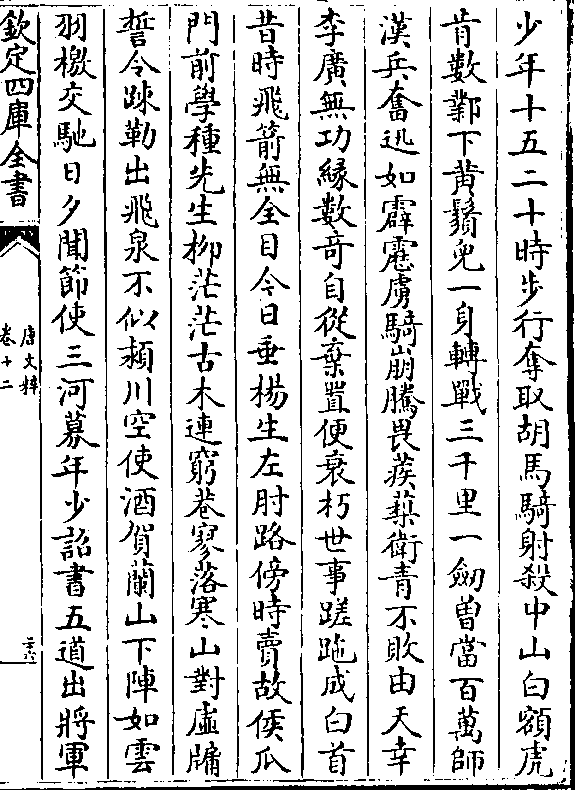 少年十五二十時步行奪取胡馬騎射殺中山白額虎
肯數鄴下黃鬚兒一身轉戰三千里一劒曽當百萬師
漢兵奮迅如霹靂虜騎崩騰畏蒺蔾衛青不敗由天幸
李廣無功緣數奇自從棄置便衰朽世事蹉跎成白首
昔時飛箭無全目今日垂楊生左肘路傍時賣故侯瓜
門前學種先生柳茫茫古木連窮巷寥落寒山對虛牖
誓令疎勒出飛泉不似潁川空使酒賀蘭山下陣如雲
羽檄交馳日夕聞節使三河募年少詔書五道出將軍
欽定四庫全書
唐文粹
卷十二
二六